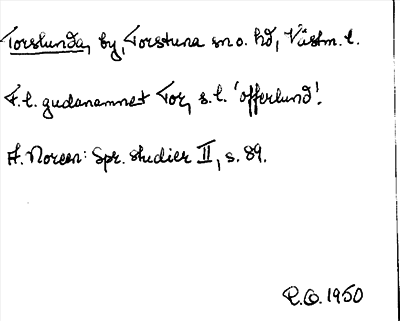 Torslunda, by, Torstuna sn o. hd, Västm. l.
F.l. gudanamnet Tor, s.l. 'offerlund'.
A. Noreen: Spr. studier II, s. 89.
R.O. 1950